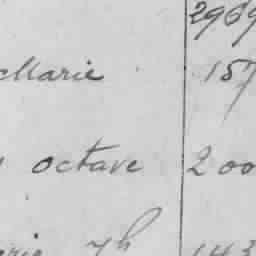 2969
Marie 157
octave 200
7h 143